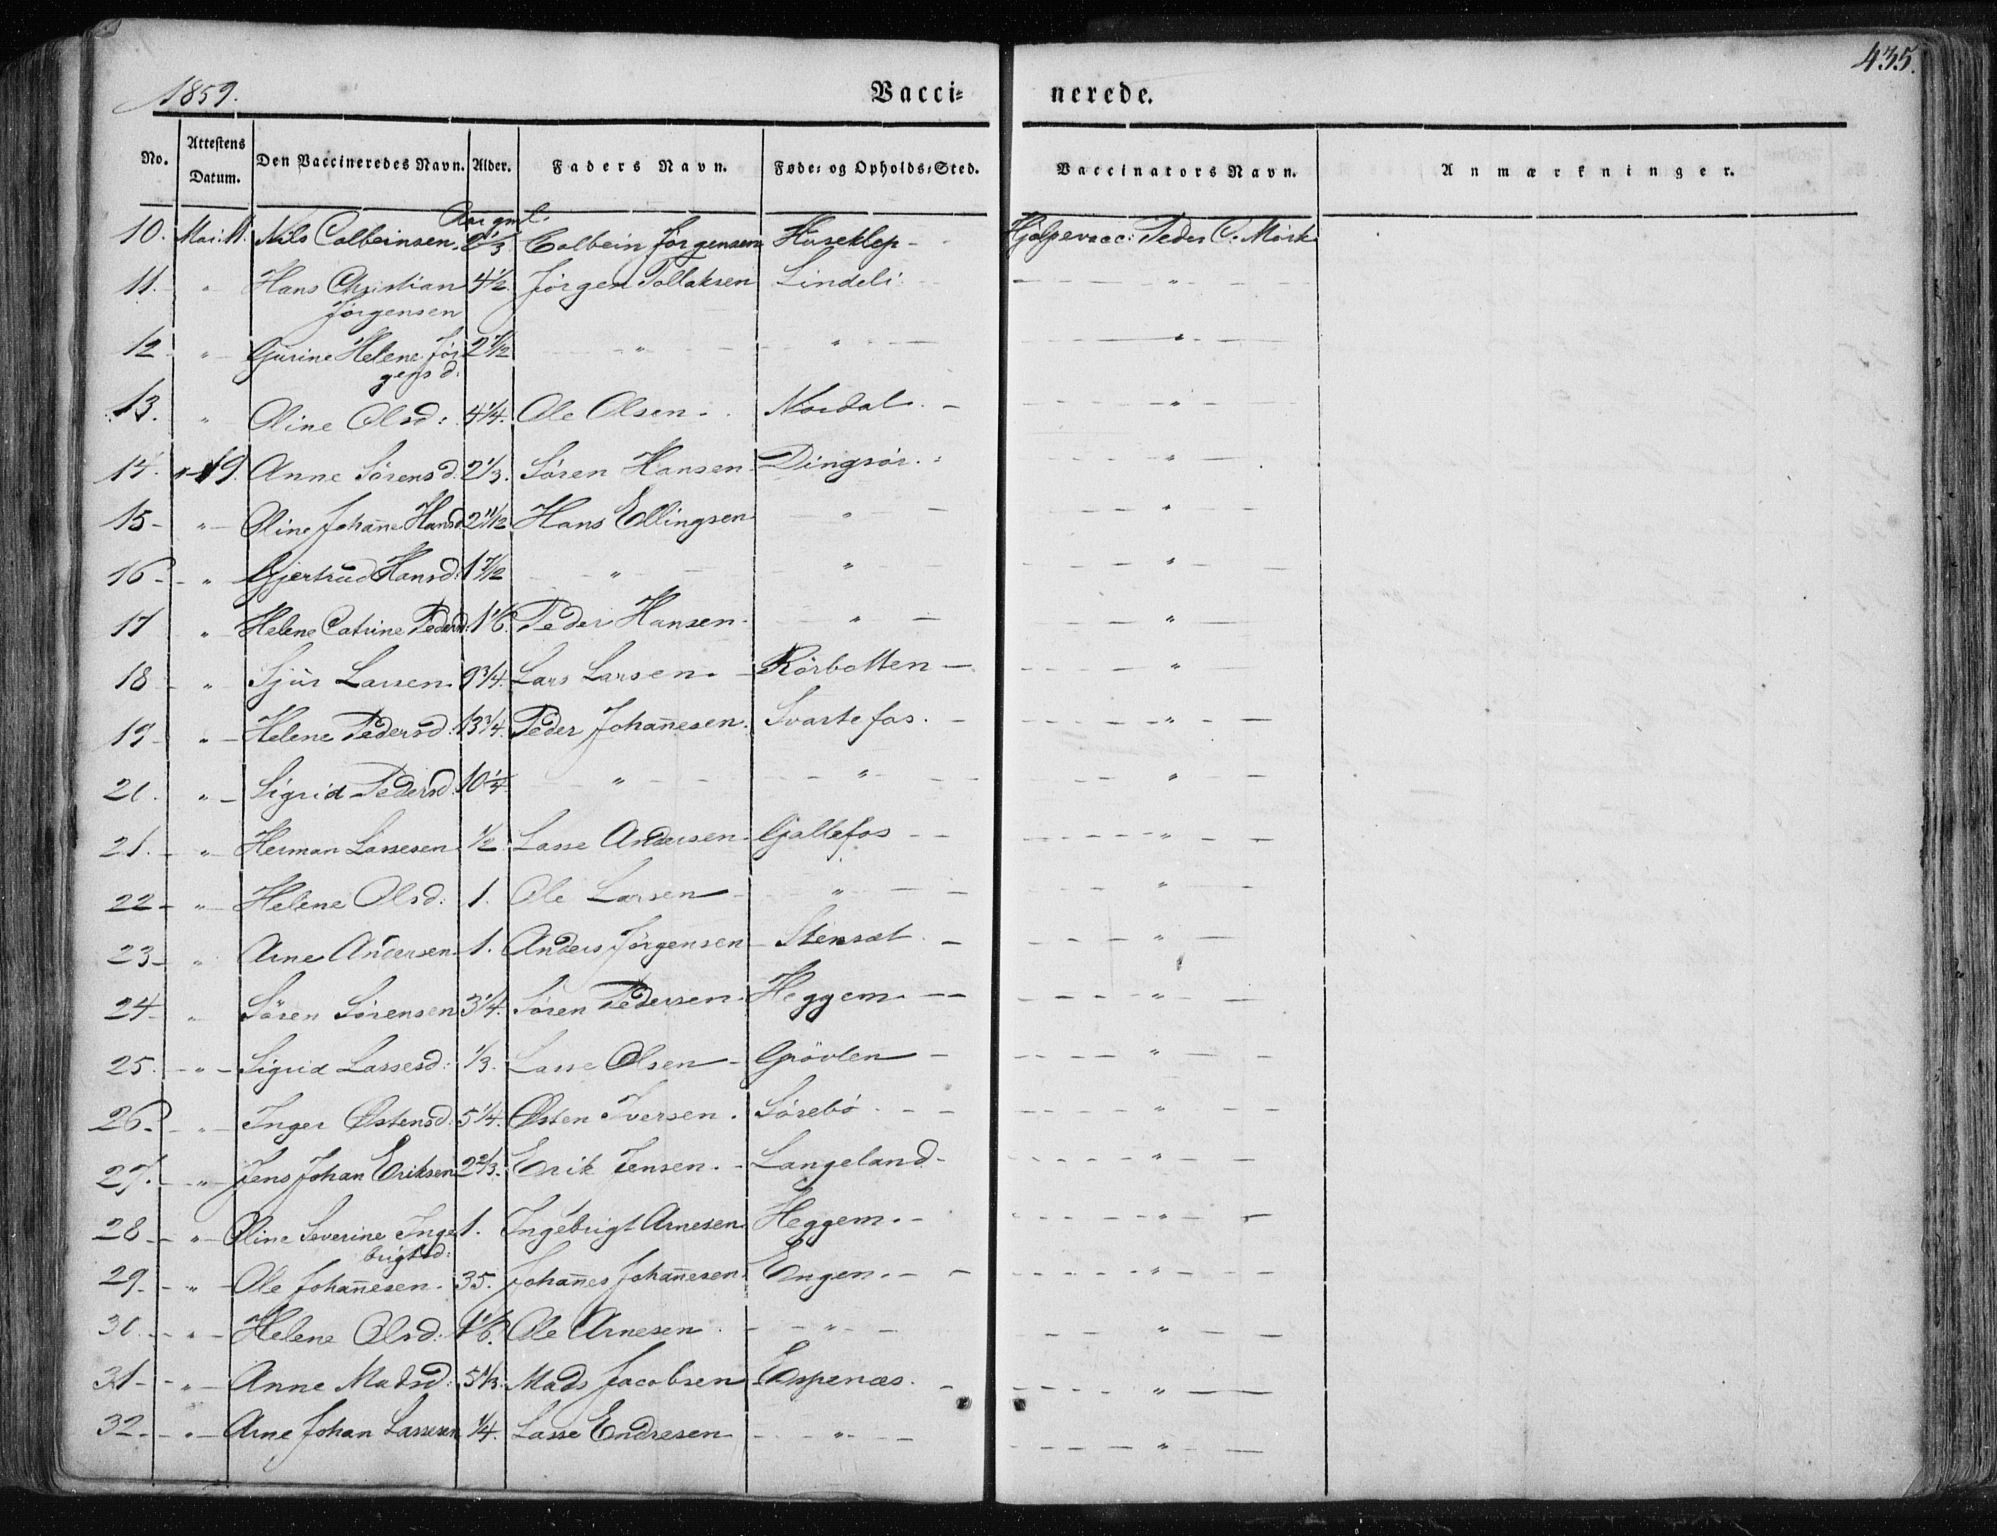 435.
1859.
Vacci= nerede.
No. Attestens Datum. Den Vaccineredes Navn. Alder. Faders Navn. Føde= og Opholds=Sted. Vaccinators Navn. Anmærkninger.
Aar gml.
10. Mai 11. Nils Colbeinsen. Colbein Jørgensen Huseklep - Hjelpevacc: Peder C. Mørk
11. " Hans Christian 4 1/2. Jørgen Tollaksen Lindeli - "
Jørgensen
12 " Gurine Helene Jør 2 7/12 " " "
gensd.
13. " Oline Olsd: 4 1/4. Ole Olsen. Nordal. - "
14. " 19. Anne Sørensd. 2 1/3. Søren Hansen Dingsør. "
15 - " Oline Johan̄e Hansd 2 11/12 Hans Ellingsen " "
16 - " Gjertrud Hansd: 1 7/12 " " "
17 " Helene Catrine Pedersd: 1 1/6. Peder Hansen. " "
18 - " Sjur Larsen. 9 3/4. Lars Larsen. Rørbotten - "
19 - " Helene Pedersd: 13 3/4. Peder Johan̄esen. Svartefos. - "
20. " Sigrid Pedersd. 10 1/4. " " "
21. " Herman Lassesen 1/2. Lasse Andersen. Galtefos - "
22 - " Helene Olsd: 1. Ole Larsen - " "
23 - " Arne Andersen 1. Anders Jørgensen Stensæt. - "
24 - " Søren Sørensen 3 1/4. Søren Pedersen. Heggem - "
25. - " Sigrid Lassesd: 1/3. Lasse Olsen Grøvlen - "
26. - " Inger Østensd: 5 1/4. Østen Iversen. Sørebø. - "
27. - " Jens Johan Eriksen 2 2/3. Erik Jensen. - Langeland - "
28 - " Oline Severine Inge 1. Ingebrigt Arnesen Heggem. - "
brigtsd:
29. - " Ole Johan̄esen. 35. Johan̄es Johan̄esen. Engen. - "
30. - " Helene Olsd: 1 1/6. Ole Arnesen. " "
31 - " Anne Madsd: 5 1/3. Mads Jacobsen Espenæs. - "
32. - " Arne Johan Lassesen 1/4. Lasse Endresen " "